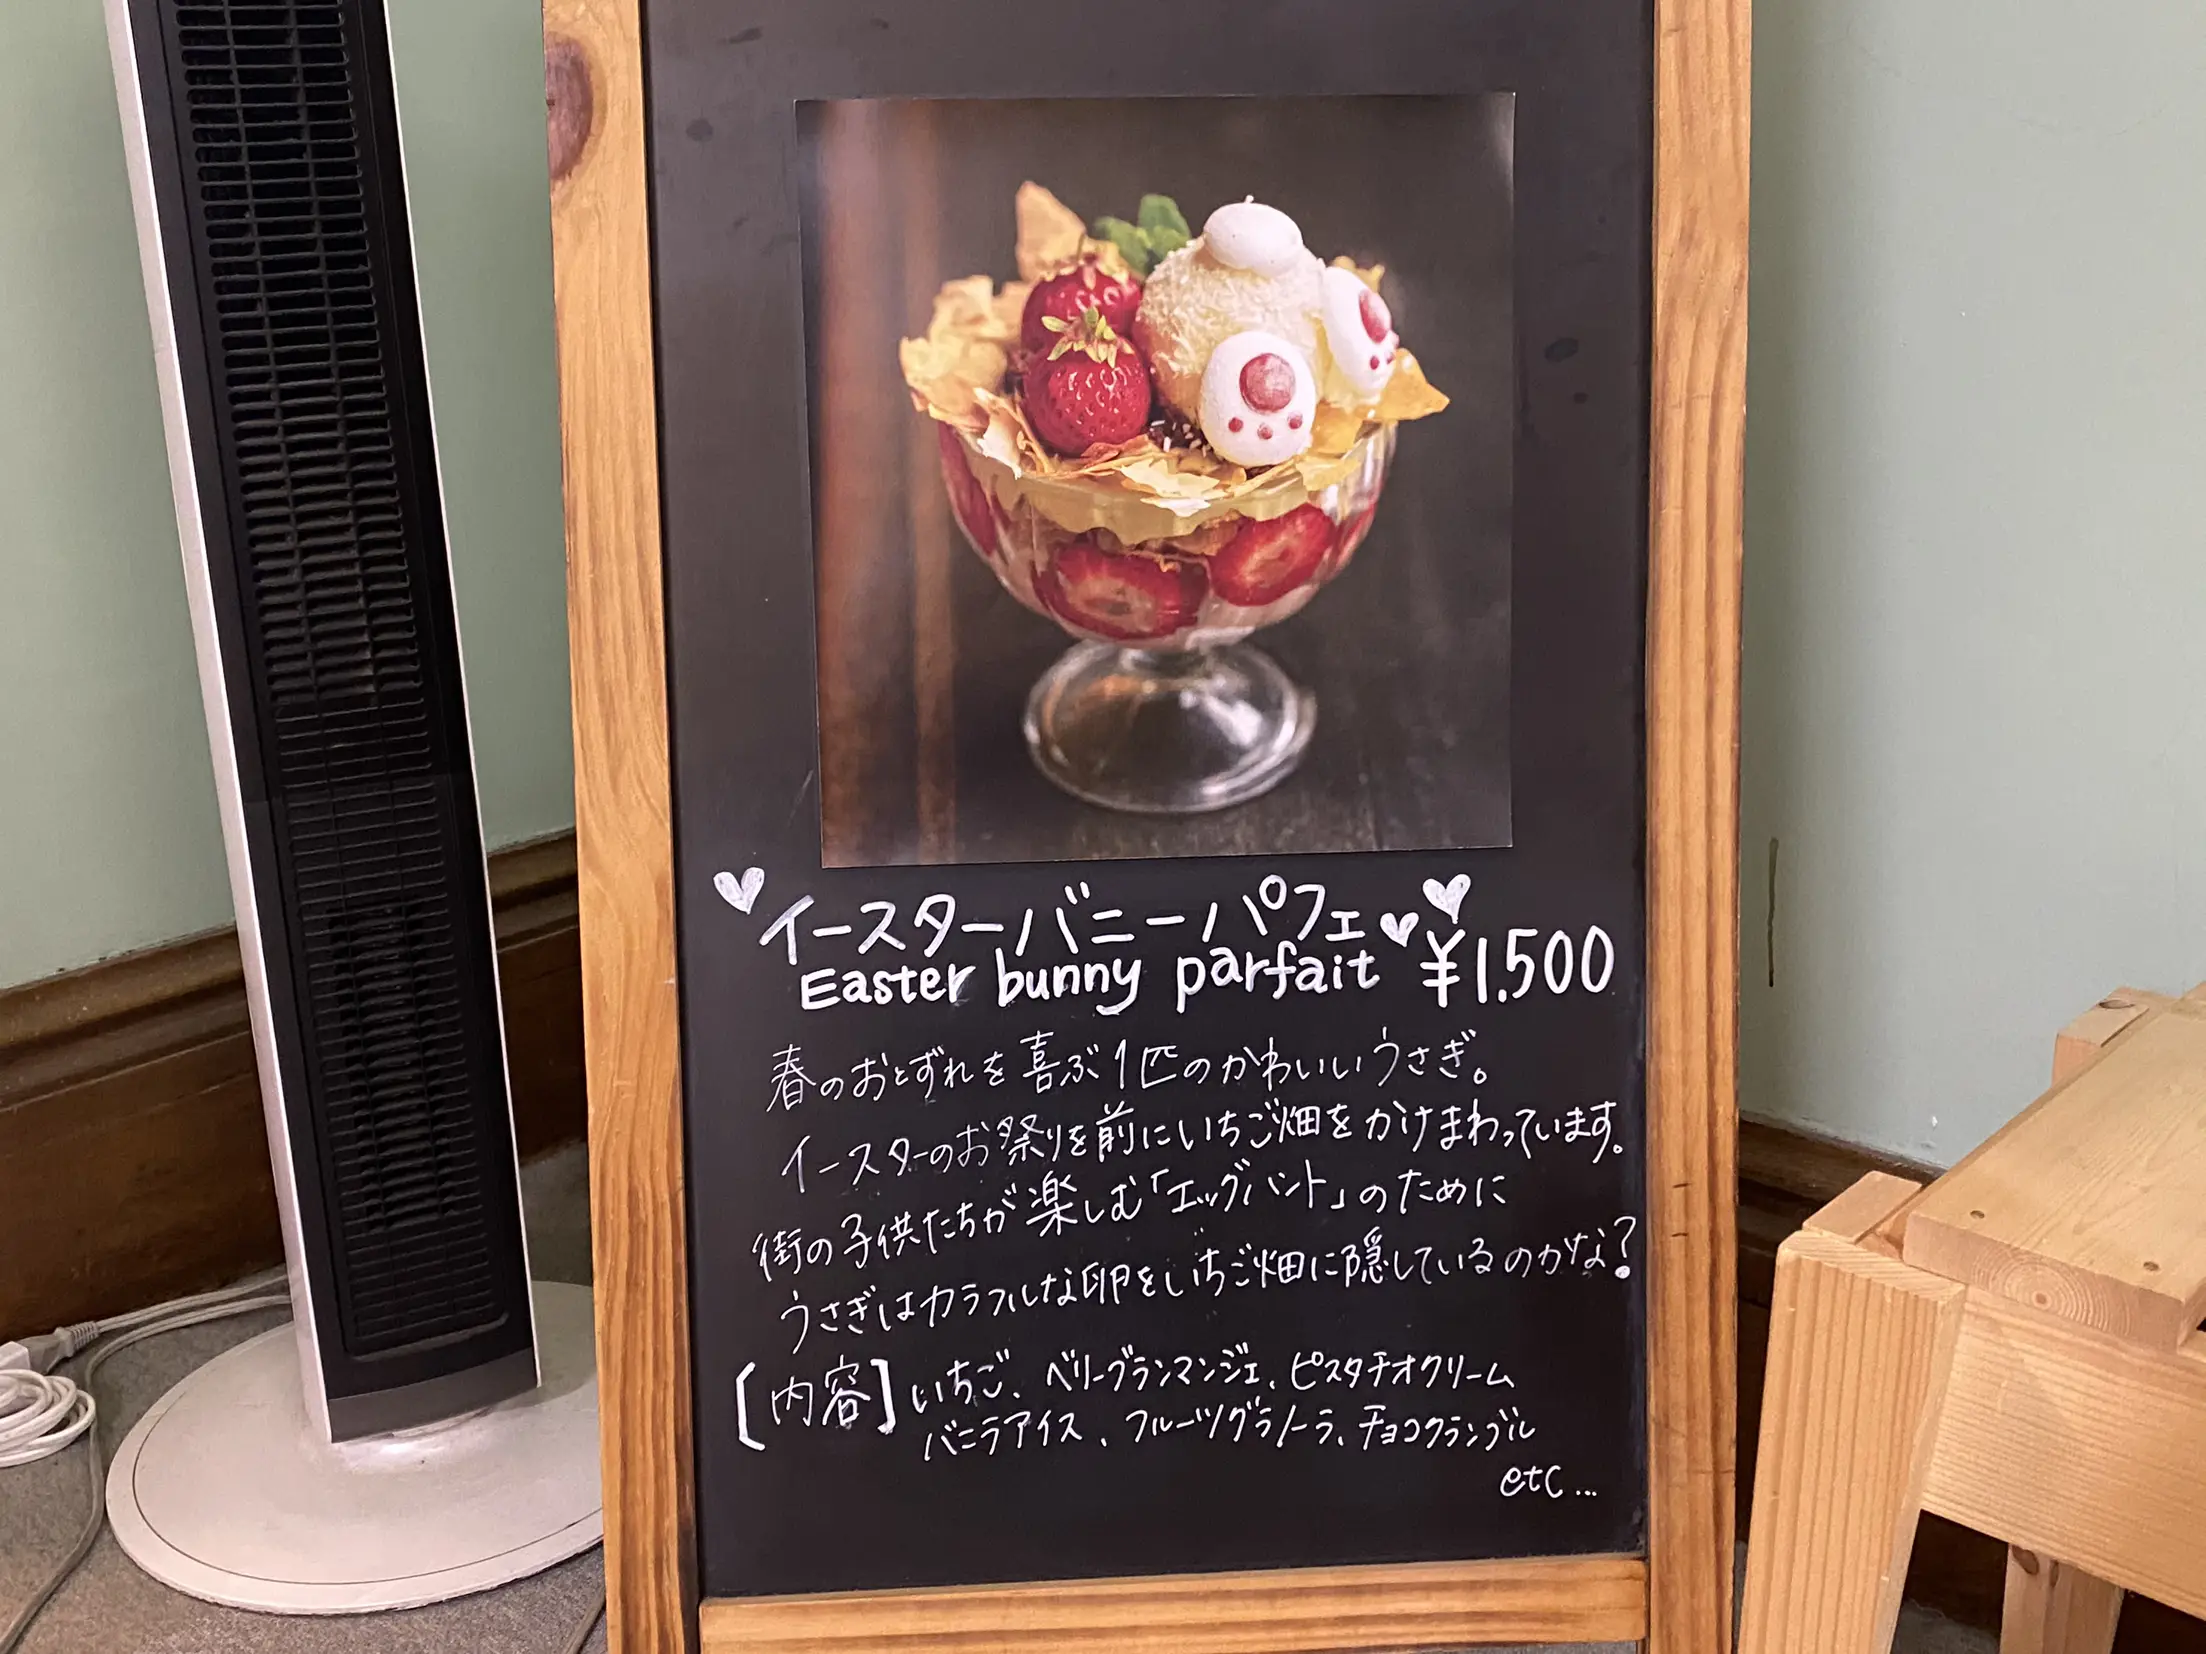 イースターバニーパフェ
Easter bunny parfait ¥1.500
春のおとずれを喜ぶ1匹のかわいいうさぎ。
イースターのお祭りを前にいちご畑をかけまわっています。
街の子供たちが楽しむ「エッグハント」のために
うさぎはカラフルな卵をいちご畑に隠しているのかな?
[内容] いちご、ベリーブランマンジェ、ピスタチオクリーム
バニラアイス、フルーツグラノーラ、チョコクランブル
etc...